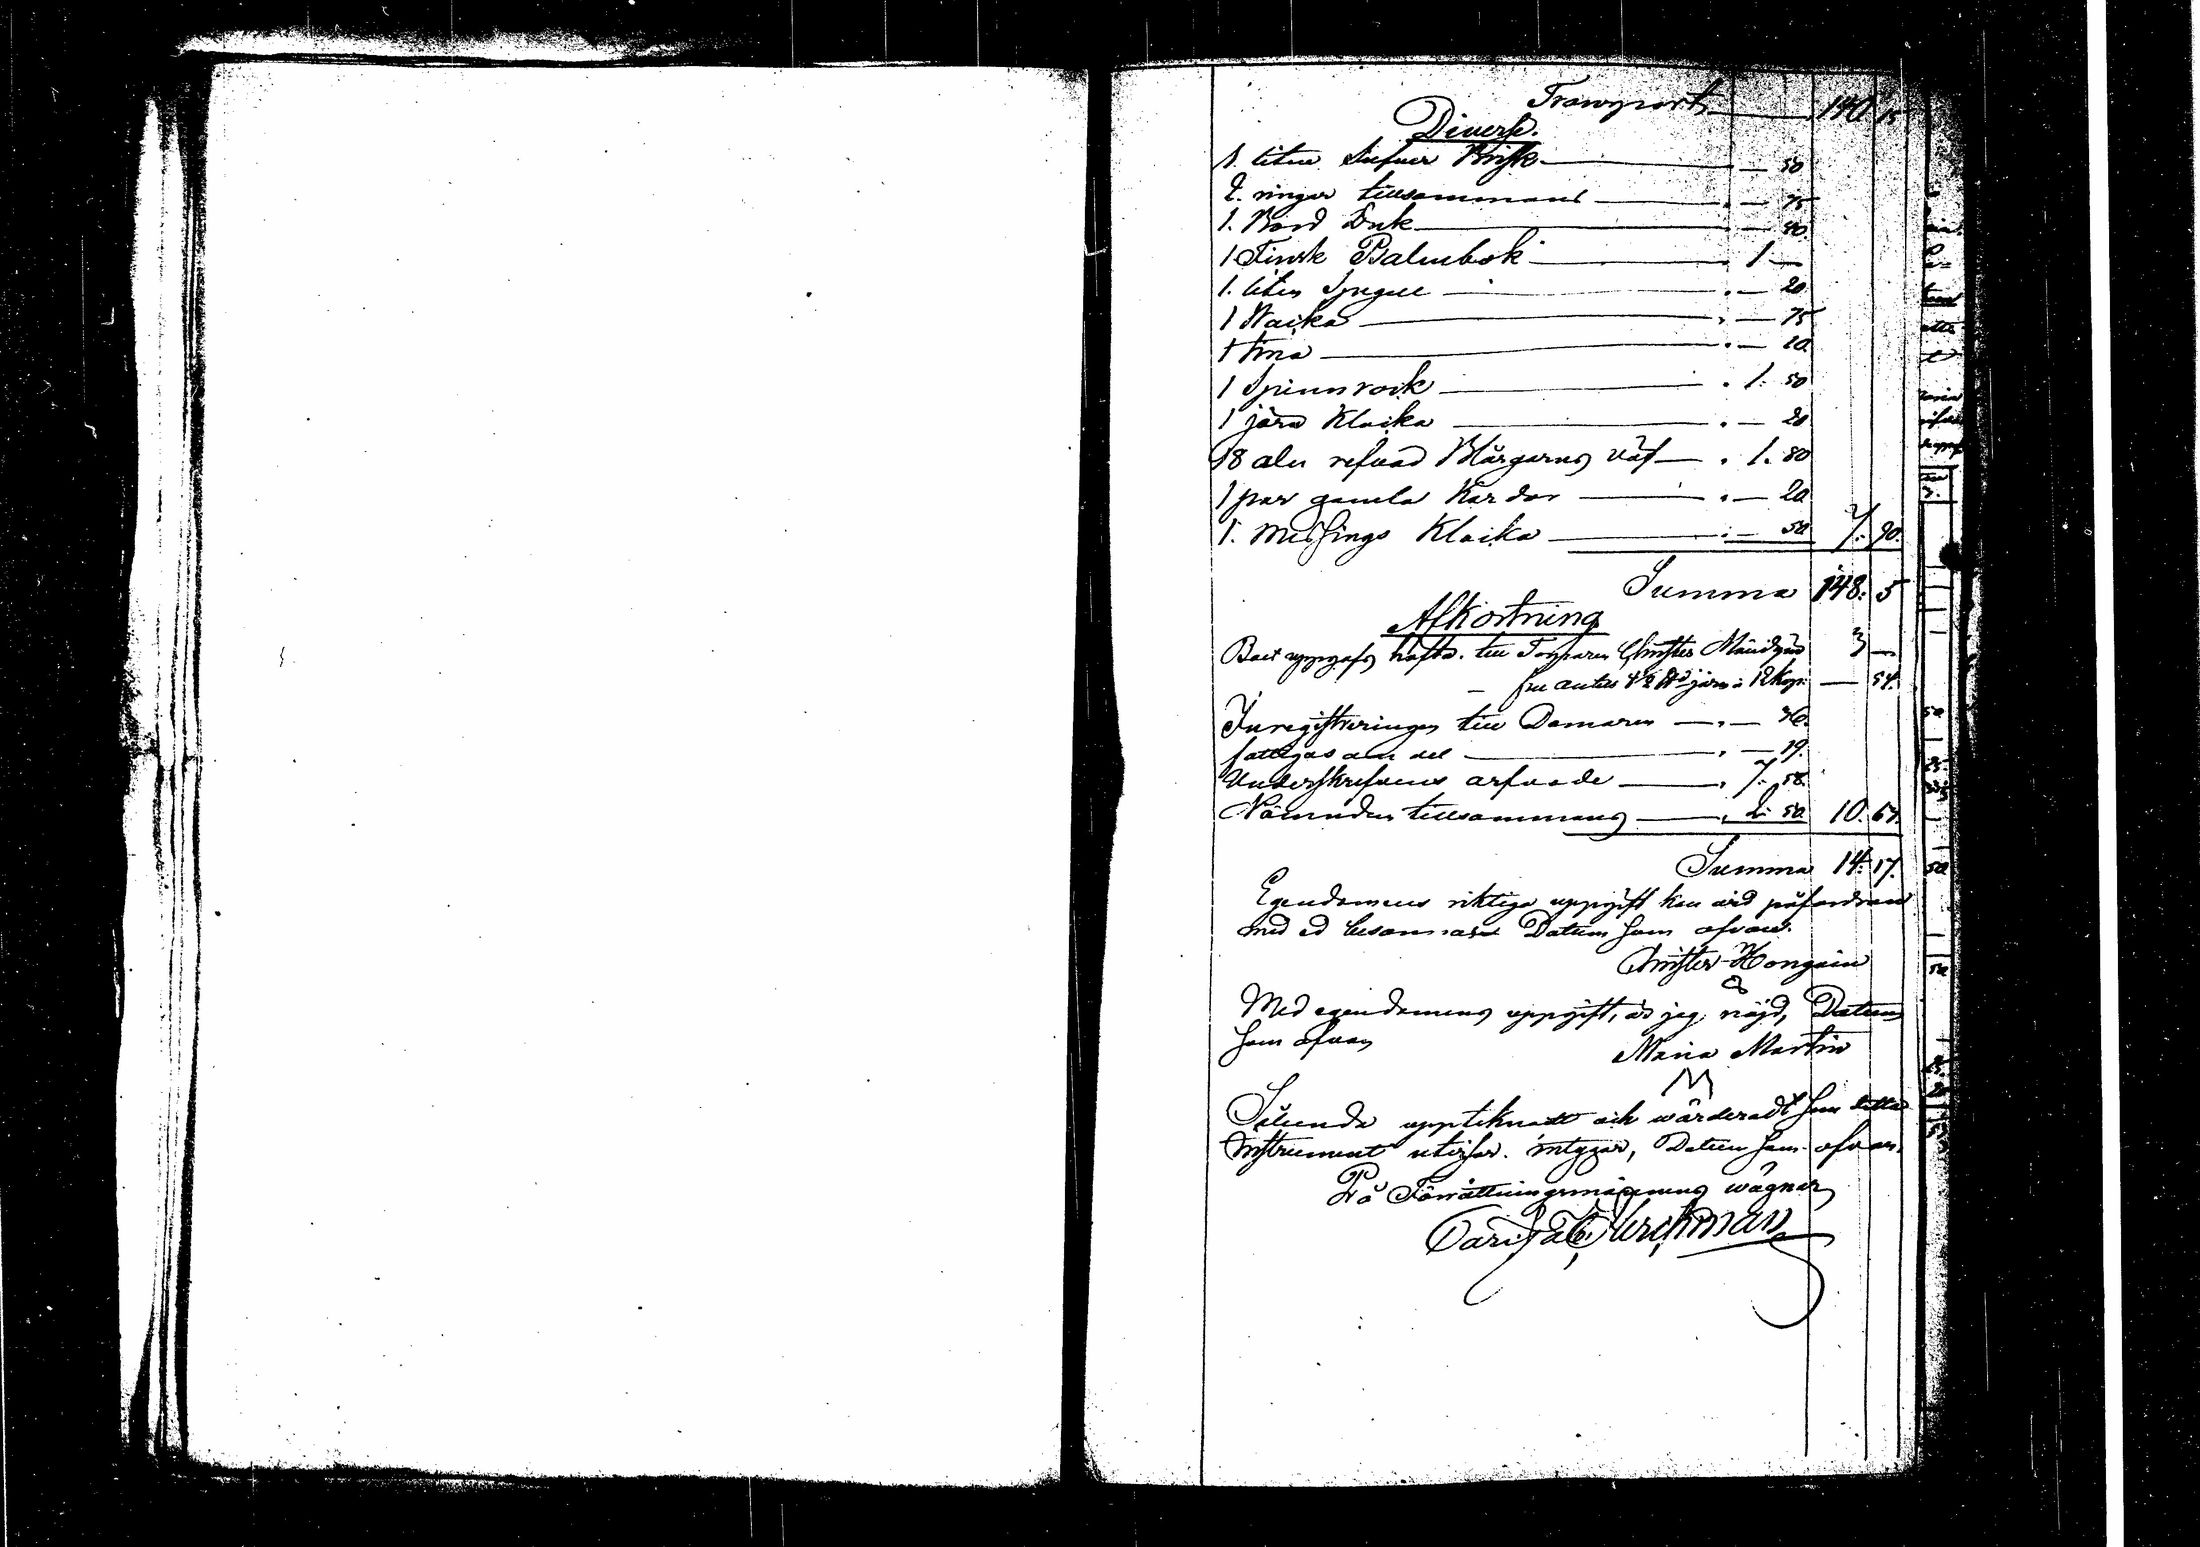 Transport 140 15
Diverse.
1. liten Silfver Brisk — 50
2. ringar tillsammans — 75
1. Bord Duk — 40
1 Finsk Psalmbok 1 —
1. liten Spegel — 20
1 Wacka — 75
1 tina — 10
1 Spinnrock 1. 50
1 järn Klocka — 20
18 aln refvad Blårgarns väf 1. 80
1 par gamla Kardor — 20
1. Messings Klocka — 50 7. 90.
Summa 148. 5
Afkortning
Boet uppgafs häfta. till Torparen Christer 3 —
järn à 12 kop: — 54.
Inregistreringen till Domaren — 36.
fattigas andel — 19.
Underskrefvens arfvode 7. 58.
Nämnden tillsammans 2. 50. 10. 63.
Summa 14. 17.
Egendomens riktiga uppgift kan vid påfordran
med ed besannas Datum som ofvan.
Christer Hongain
Med egendomens uppgift, är jag nöjd, Datum
som ofvan
Maria Martin
M
Sålunda upptecknadt och wärderadt som detta
Instrument utvisar. intygar, Datum som ofvan.
På Förrättningsmännens wägnar